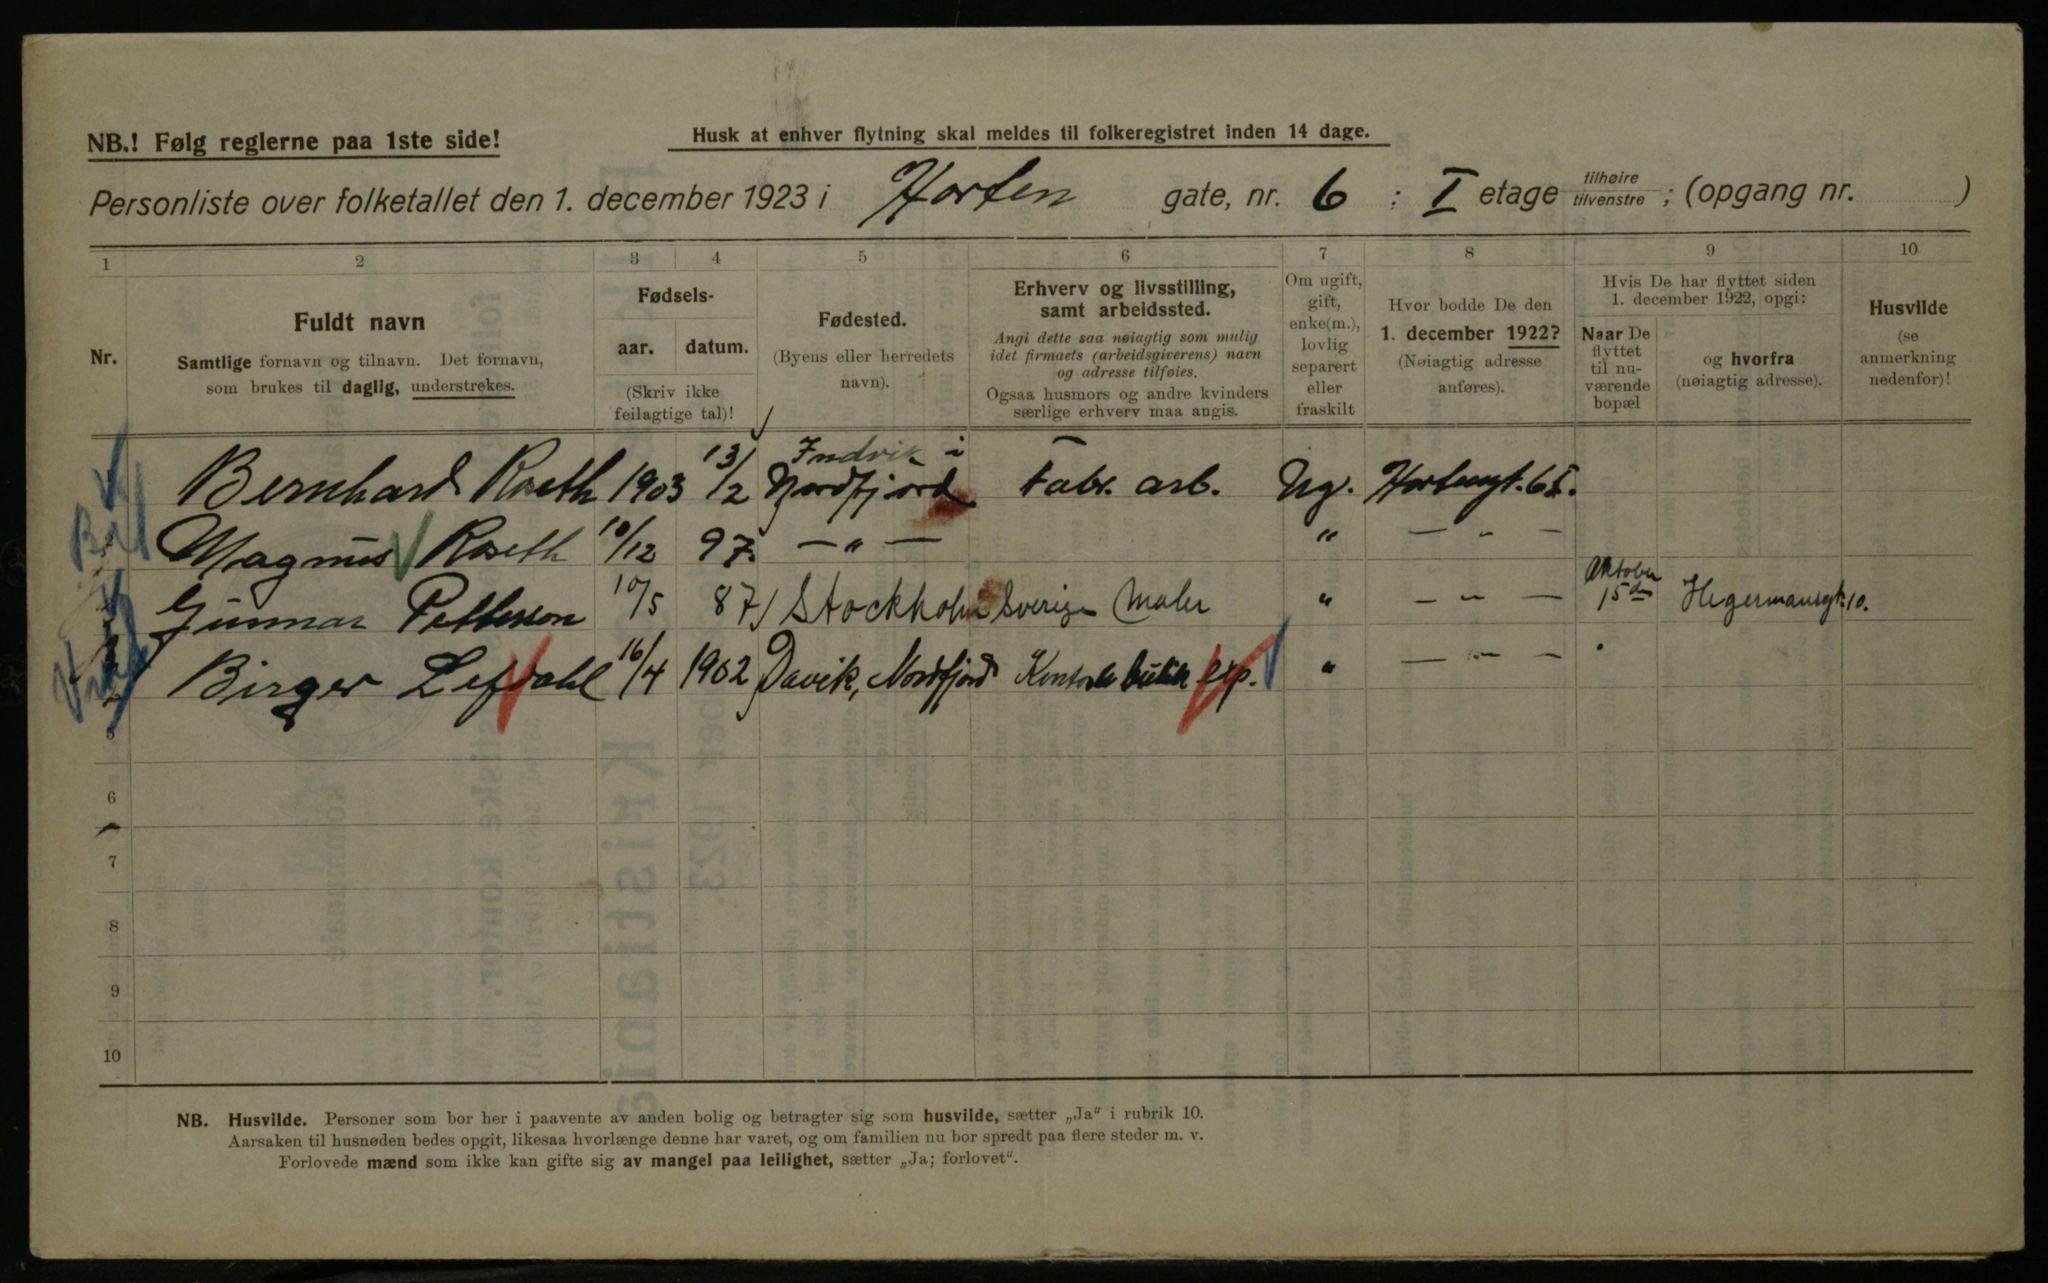 NB.! Følg reglerne paa 1ste side!
Husk at enhver flytning skal meldes til folkeregistret inden 14 dage.
Personliste over folketallet den 1. december 1923 i Horten gate, nr. 6 ; I etage tilhøire tilvenstre ; (opgang nr. )
1 2 3 4 5 6 7 8 9 10
Nr.
Fuldt navn
Samtlige fornavn og tilnavn. Det fornavn,
som brukes til daglig, understrekes.
Fødsels-
aar. datum.
(Skriv ikke
feilagtige tal)!
Fødested.
(Byens eller herredets
navn).
Erhverv og livsstilling,
samt arbeidssted.
Angi dette saa nøiagtig som mulig
idet firmaets (arbeidsgiverens) navn
og adresse tilføies.
Ogsaa husmors og andre kvinders
særlige erhverv maa angis.
Om ugift,
gift,
enke(m.),
lovlig
separert
eller
fraskilt
Hvor bodde De den
1. december 1922?
(Nøiagtig adresse
anføres).
Hvis De har flyttet siden
1. december 1922, opgi:
Naar De
flyttet
til nu-
værende
bopæl
og hvorfra
(nøiagtig adresse).
Husvilde
(se
anmerkning
nedenfor)!
Bernhard Roseth 1903 13/2 Indvik i Nordfjord Fabr. arb. Ug. Hortengt. 6 I.
Magnus Roseth 10/12 97. — " — " — " —
Gunnar Petterson 10/5 87 Stockholm Sverige Maler " — " — Oktober 15den Hegermansgt. 10.
Birger Lefdahl 16/4 1902 Davik, Nordfjord Kontor & butik exp. " — " —
5
6
7
8
9
10
NB. Husvilde. Personer som bor her i paavente av anden bolig og betragter sig som husvilde, sætter „Ja“ i rubrik 10.
Aarsaken til husnøden bedes opgit, likesaa hvorlænge denne har varet, og om familien nu bor spredt paa flere steder m. v.
Forlovede mænd som ikke kan gifte sig av mangel paa leilighet, sætter „Ja; forlovet“.